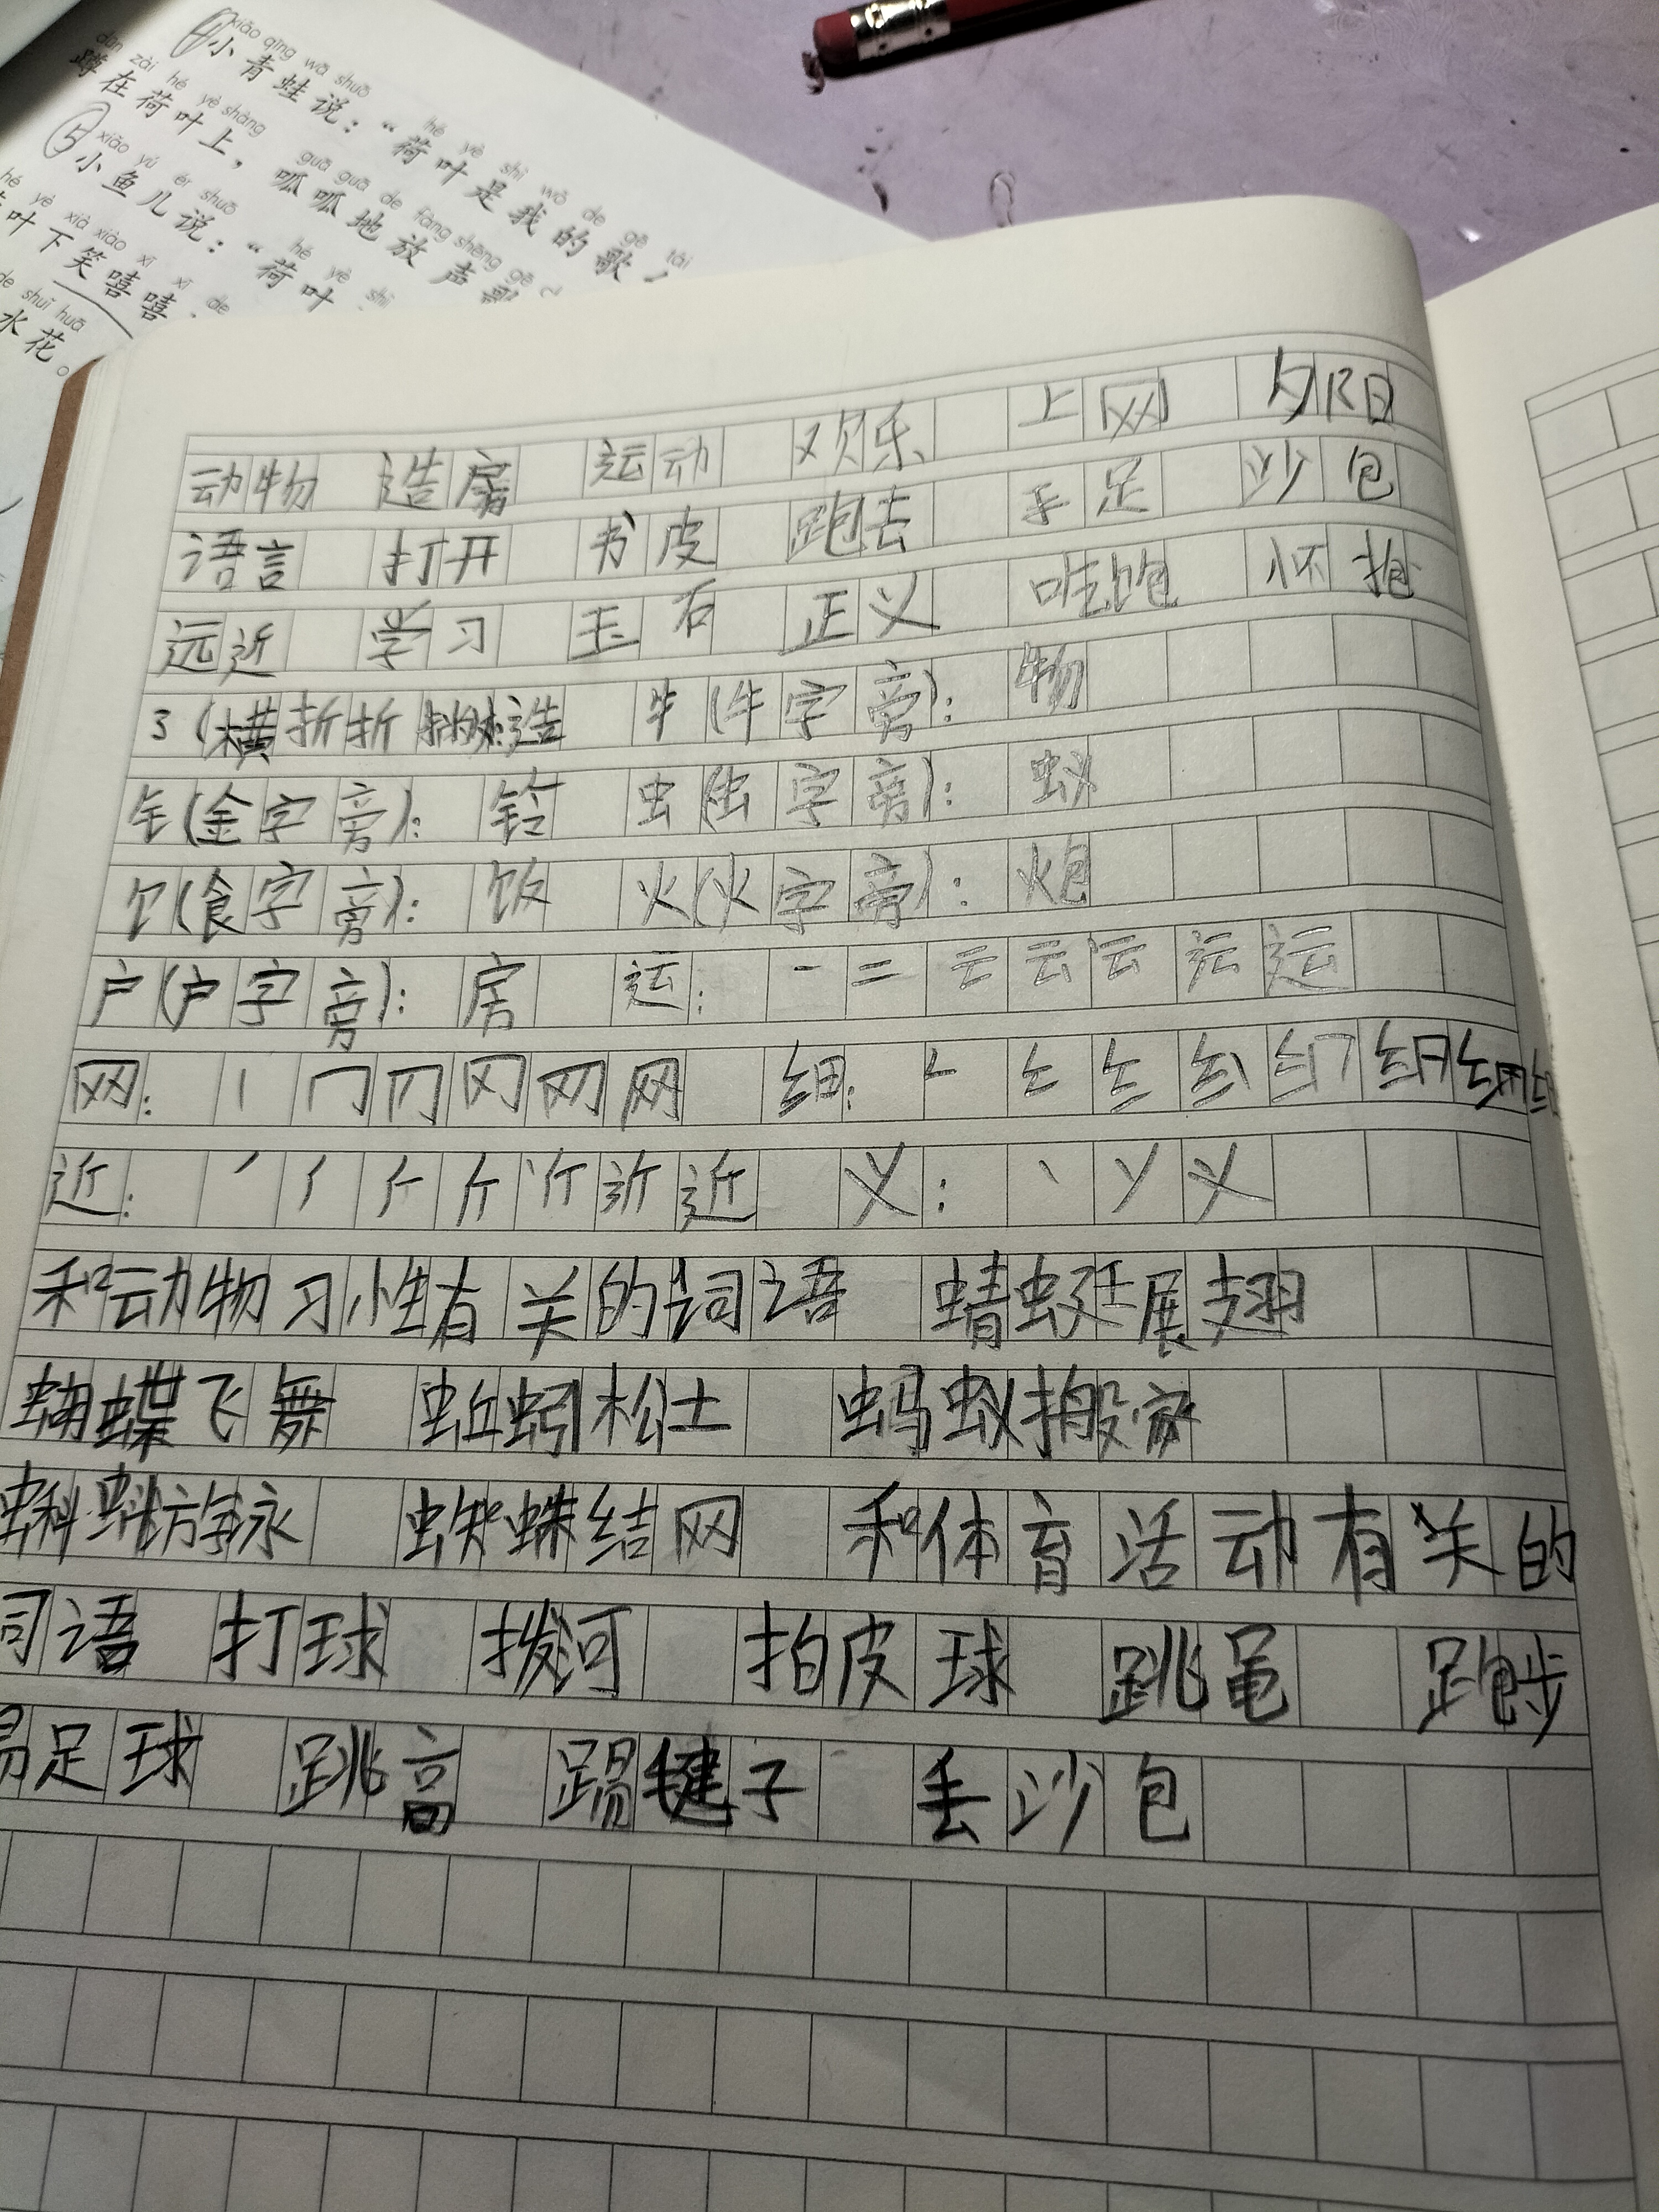 xiǎo qīng wā shuō hé yè shì wǒ de gē tái
④小青蛙说：“荷叶是我的歌
dūn zài hé yè shàng guā guā de fàng shēng gē
蹲在荷叶上，呱呱地放声歌
xiǎo yú ér shuō hé yè shì
⑤小鱼儿说：“荷叶
hé yè xià xiào xī xī de
叶下笑嘻嘻
de shuǐ huā
水花。
动物 造房 运动 欢乐 上网 夕阳
语言 打开 书皮 跑去 手足 沙包
远近 学习 玉石 正义 吃饱 怀抱
3(横折折 造 牜(牛字旁)：物
钅(金字旁)：铃 虫(虫字旁)：蚁
饣(食字旁)：饭 火(火字旁)：炮
户(户字旁)：房 运：一 二 云 云 运
网：丨 冂 网 细：
近：丿 斤 近 义：丶 义
和动物习性有关的词语 蜻蜓展翅
蝴蝶飞舞 蚯蚓松土 蚂蚁搬家
蝌蚪游泳 蜘蛛结网 和体育活动有关的
词语 打球 拔河 拍皮球 跳绳 跑步
踢足球 跳高 踢毽子 丢沙包